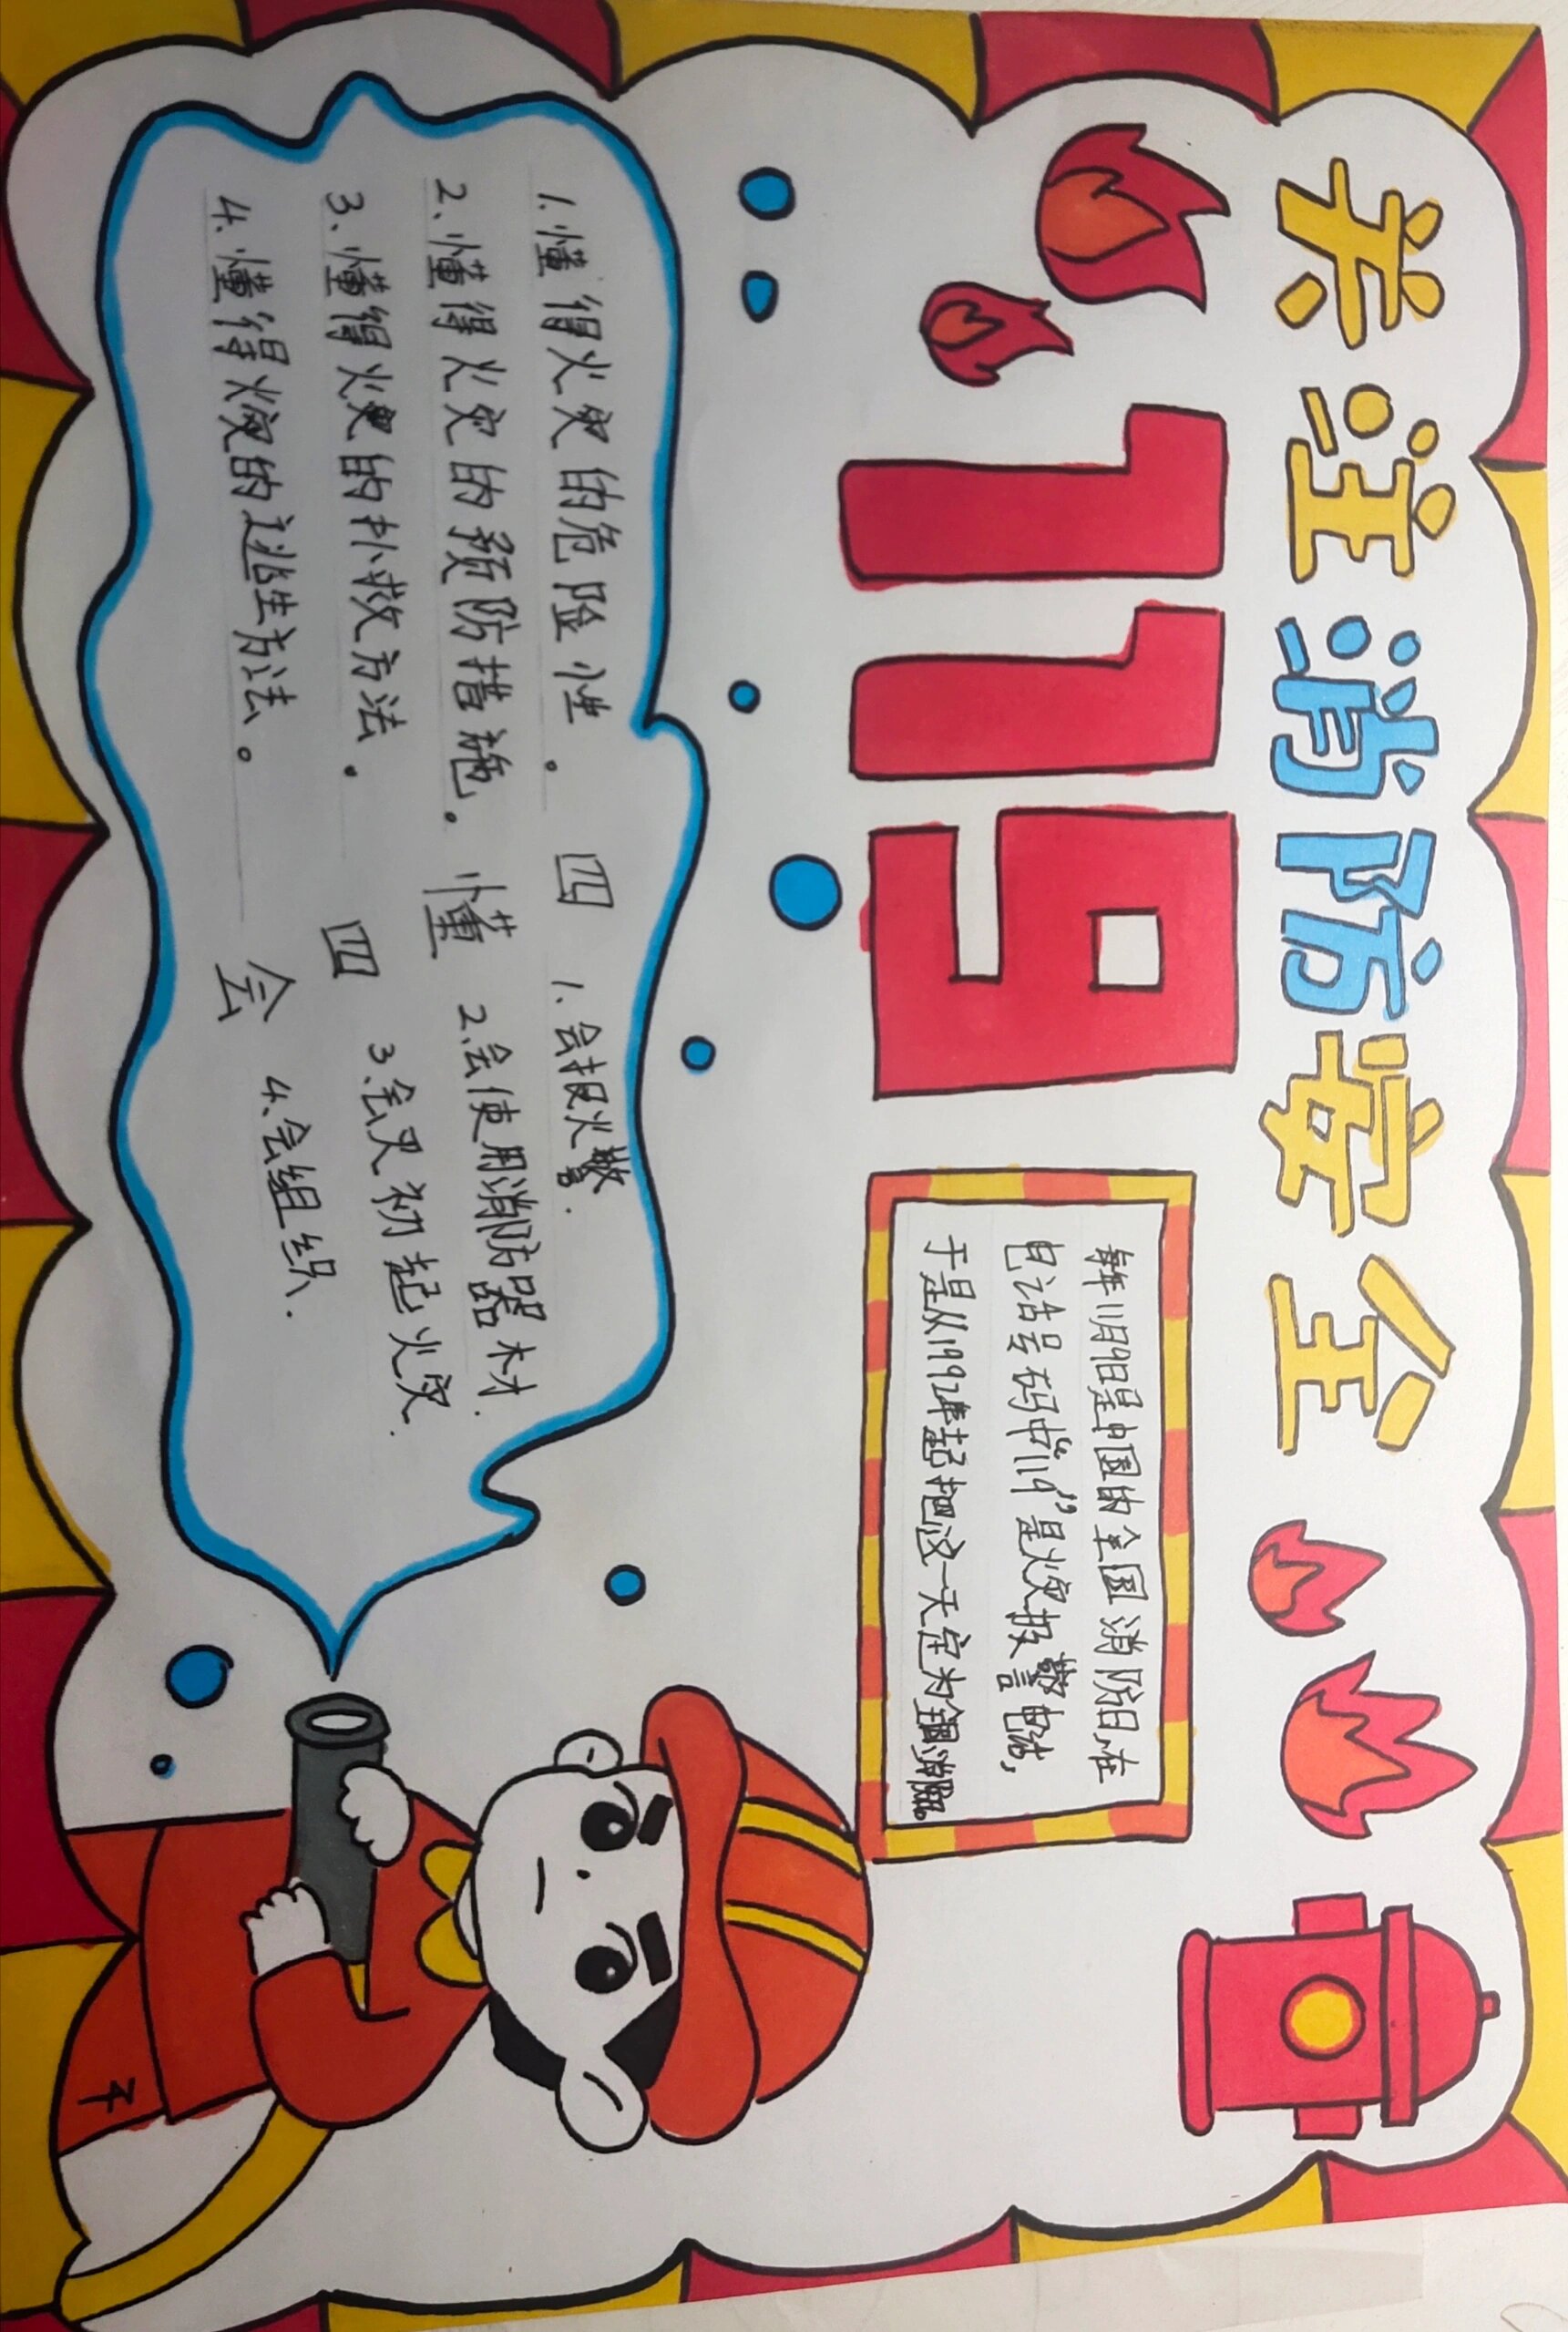 关注消防安全
119
每年11月9日是中国的全国消防日,在
电话号码中“119”是火灾报警电话,
于是从1992年起把这一天定为全国消防日。
1.懂得火灾的危险性。
2、懂得火灾的预防措施。
3、懂得火灾的扑救方法.
4.懂得火灾的逃生方法。
四懂
四会
1.会报火警.
2.会使用消防器材.
3.会灭初起火灾.
4.会组织.